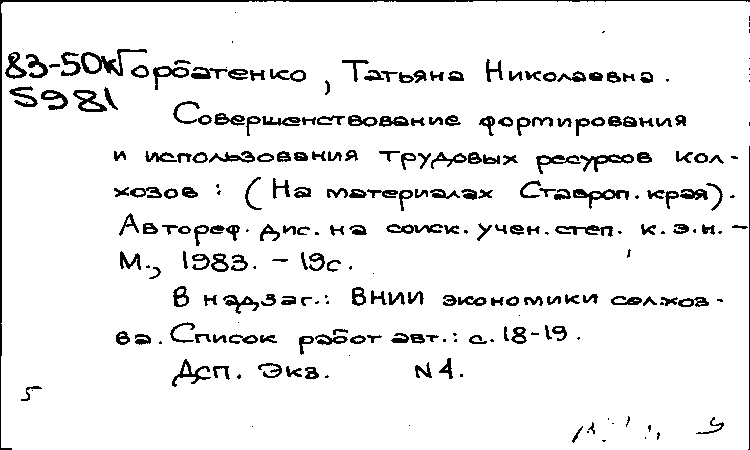 83-50К Горбатенко, Татьяна Николаевна.
5981
Совершенствование формирования
и использования трудовых ресурсов кол-
хозов : (На материалах Ставроп. края).
Автореф. дис. на соиск. учен. степ. к.э.н. -
М., 1983. - 19с.
В надзаг.: ВНИИ экономики сел.хоз-
ва. Список работ авт.: с. 18-19.
Дсп. Экз. N4.
5